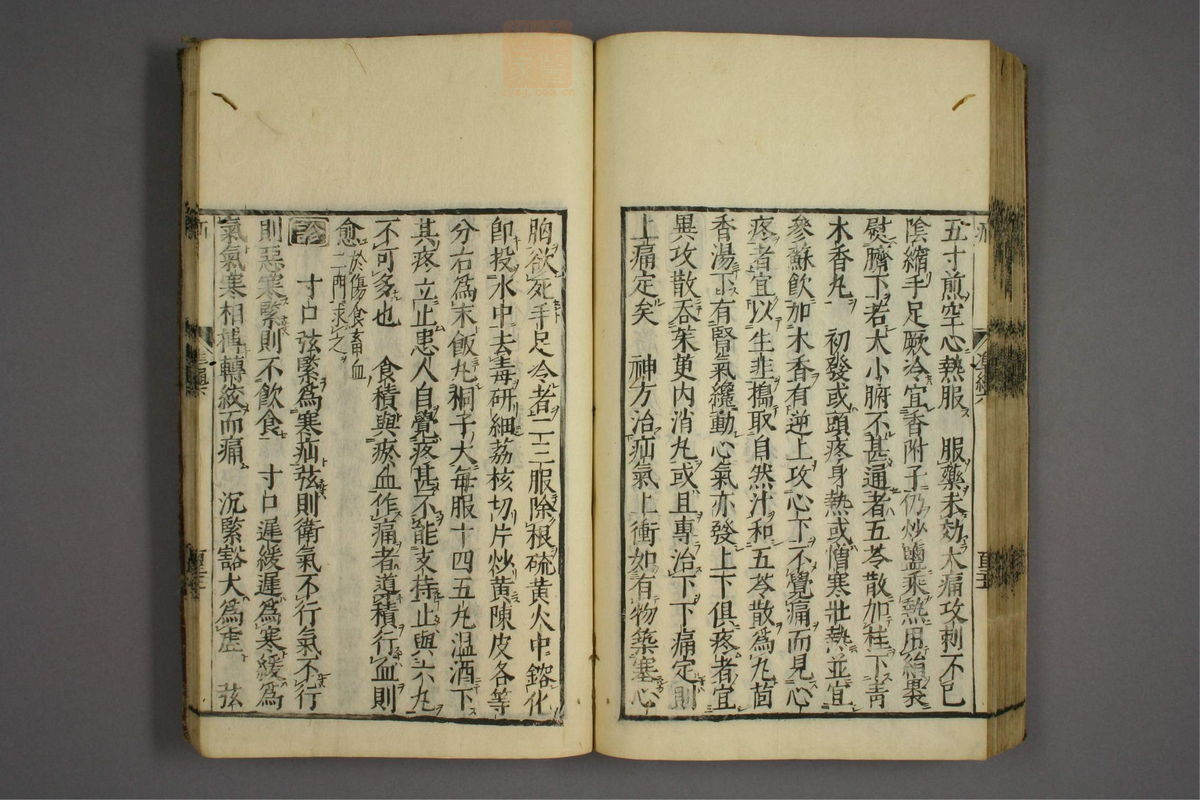 五寸煎空心熱服　服藥未効木痛攻刺不已
陰縮手足厥冷宜香附子仍炒鹽乘熱用絹裹
熨臍下若大小腑不甚通者五苓散加桂下青
木香丸　初發或頭疼身熱或憎寒壯熱並宜
參蘇飲加木香有逆上攻心下不覺痛而見心
疼者宜以生韭搗取自然汁和五苓散爲丸茴
香湯下有腎氣纔動心氣亦發上下俱疼者宜
異攻散吞茱萸內消丸或且專治下下痛定則
上痛定矣　神方治疝氣上衝如有物築塞心
胸欲死手足冷者二三服除根硫黃火中鎔化
卽投水中去毒研細荔核切片炒黃陳皮各等
分右爲末飯丸桐子大每服十四五丸温酒下
其疼立止患人自覺疼甚不能支持止與六丸
不可多也　食積與瘀血作痛者導積行血則
愈於傷食畜血二門求之
診　寸口弦緊爲寒疝弦則衛氣不行氣不行
則惡寒緊則不飲食　寸口遲緩遲爲寒緩爲
氣氣寒相搏轉絞而痛　沉緊豁大爲虛　弦